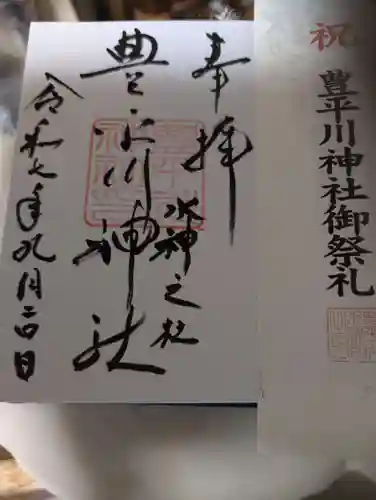 祝
豊平川神社御祭礼
奉拝
水神之社
豊平川神社
令和七年九月二日